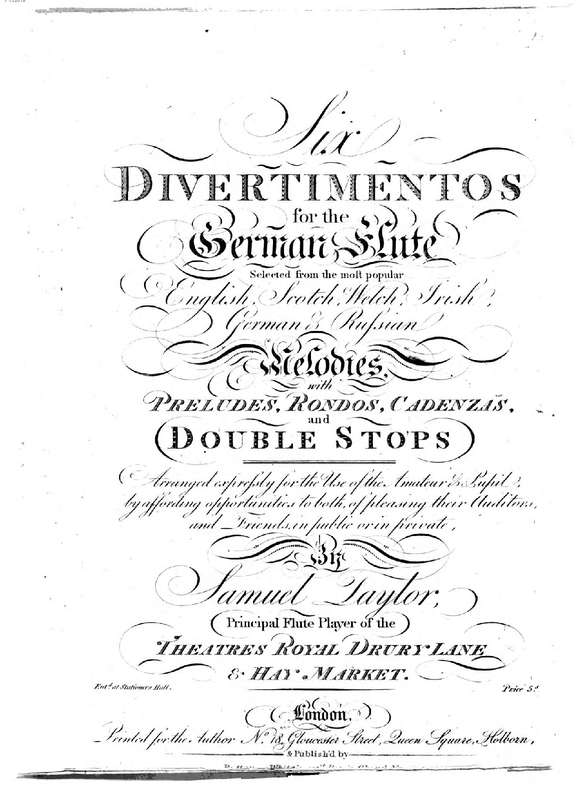 Six
DIVERTIMENTOS
for the
German Flute
Selected from the moſt popular
English, Scotch, Welch, Irish,
German & Ruſsian
Melodies,
with
PRELUDES, RONDOS, CADENZAS,
and
DOUBLE STOPS
Arranged expreſsly for the Use of the Amateur & Pupil,
by affording opportunities to both, of pleasing their Auditors,
and Friends, in public or in private,
By
Samuel Taylor,
Principal Flute Player of the
THEATRES ROYAL DRURY LANE
& HAY MARKET.
Entd. at Stationers Hall.
Price 5s.
London,
Printed for the Author No. 18, Gloucester Street, Queen Square, Holborn,
& Publish'd by